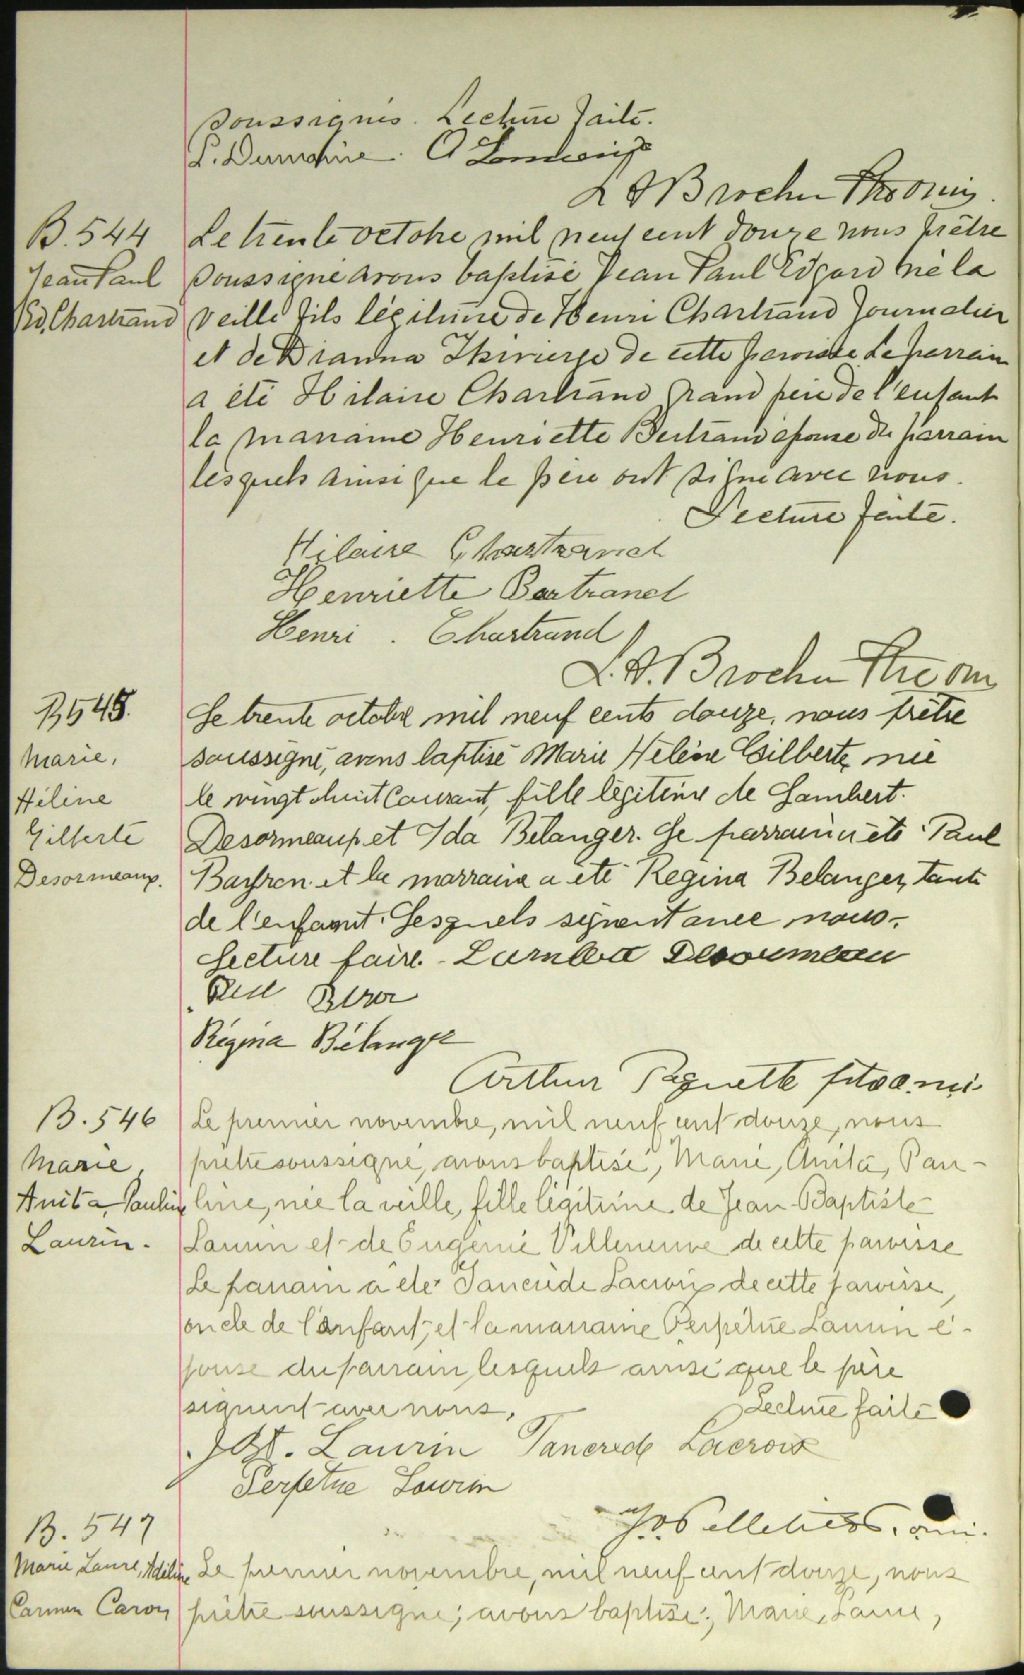 soussignés. Lecture faite.
L. Dumaine. O
L A Brochu Ptre omi.
B. 544
Jean Paul
Ed. Chartrand
Le trente octobre mil neuf cent douze nous prêtre
soussigné avons baptisé Jean Paul Edgard né la
veille fils légitime de Henri Chartrand Journalier
et de Dianna Thivierge de cette paroisse Le parrain
a été Hilaire Chartrand grand père de l'enfant
la marraine Henriette Bertrand épouse du parrain
lesquels ainsi que le père ont signé avec nous.
Lecture faite.
Hilaire Chartrand
Henriette Bertrand
Henri. Chartrand
L. A. Brochu Ptre omi
B 545.
Marie,
Hélène
Gilberte
Desormeaux.
Le trente octobre mil neuf cents douze, nous prêtre
soussigné, avons baptisé Marie Hélène Gilberte, née
le vingt huit courant, fille légitime de Lambert
Desormeaux et Ida Bélanger. Le parrain a été Paul
et la marraine a été Regina Belanger, tante
de l'enfant. Lesquels signent avec nous.
Lecture faire. Lambert Desormeau
Régina Bélanger
Arthur Paquette ptre o.m.i.
B. 546
Marie,
Anita, Pauline
Laurin.
Le premier novembre, mil neuf cent douze, nous
prêtre soussigné, avons baptisé, Marie, Anita, Pau-
line, née la veille, fille légitime de Jean-Baptiste
Laurin et de Eugénie Villeneuve de cette paroisse
Le parrain a été Tancrède Lacroix de cette paroisse,
oncle de l'enfant, et la marraine Perpétue Laurin é-
pouse du parrain, lesquels ainsi que le père
signent avec nous. Lecture faite
J Bt. Laurin Tancrede Lacroix
Perpetue Laurin
Pelletier, o.m.i.
B. 547
Marie Laure, Adéline
Carmen Caron
Le premier novembre, mil neuf cent douze, nous
prêtre soussigné; avons baptisé; Marie, Laure,